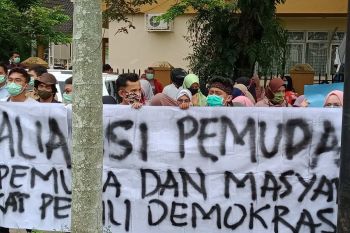 ALIANSI PEMUDA
PEMUDA DAN MASYA
KAT PEDULI DEMOKRAS